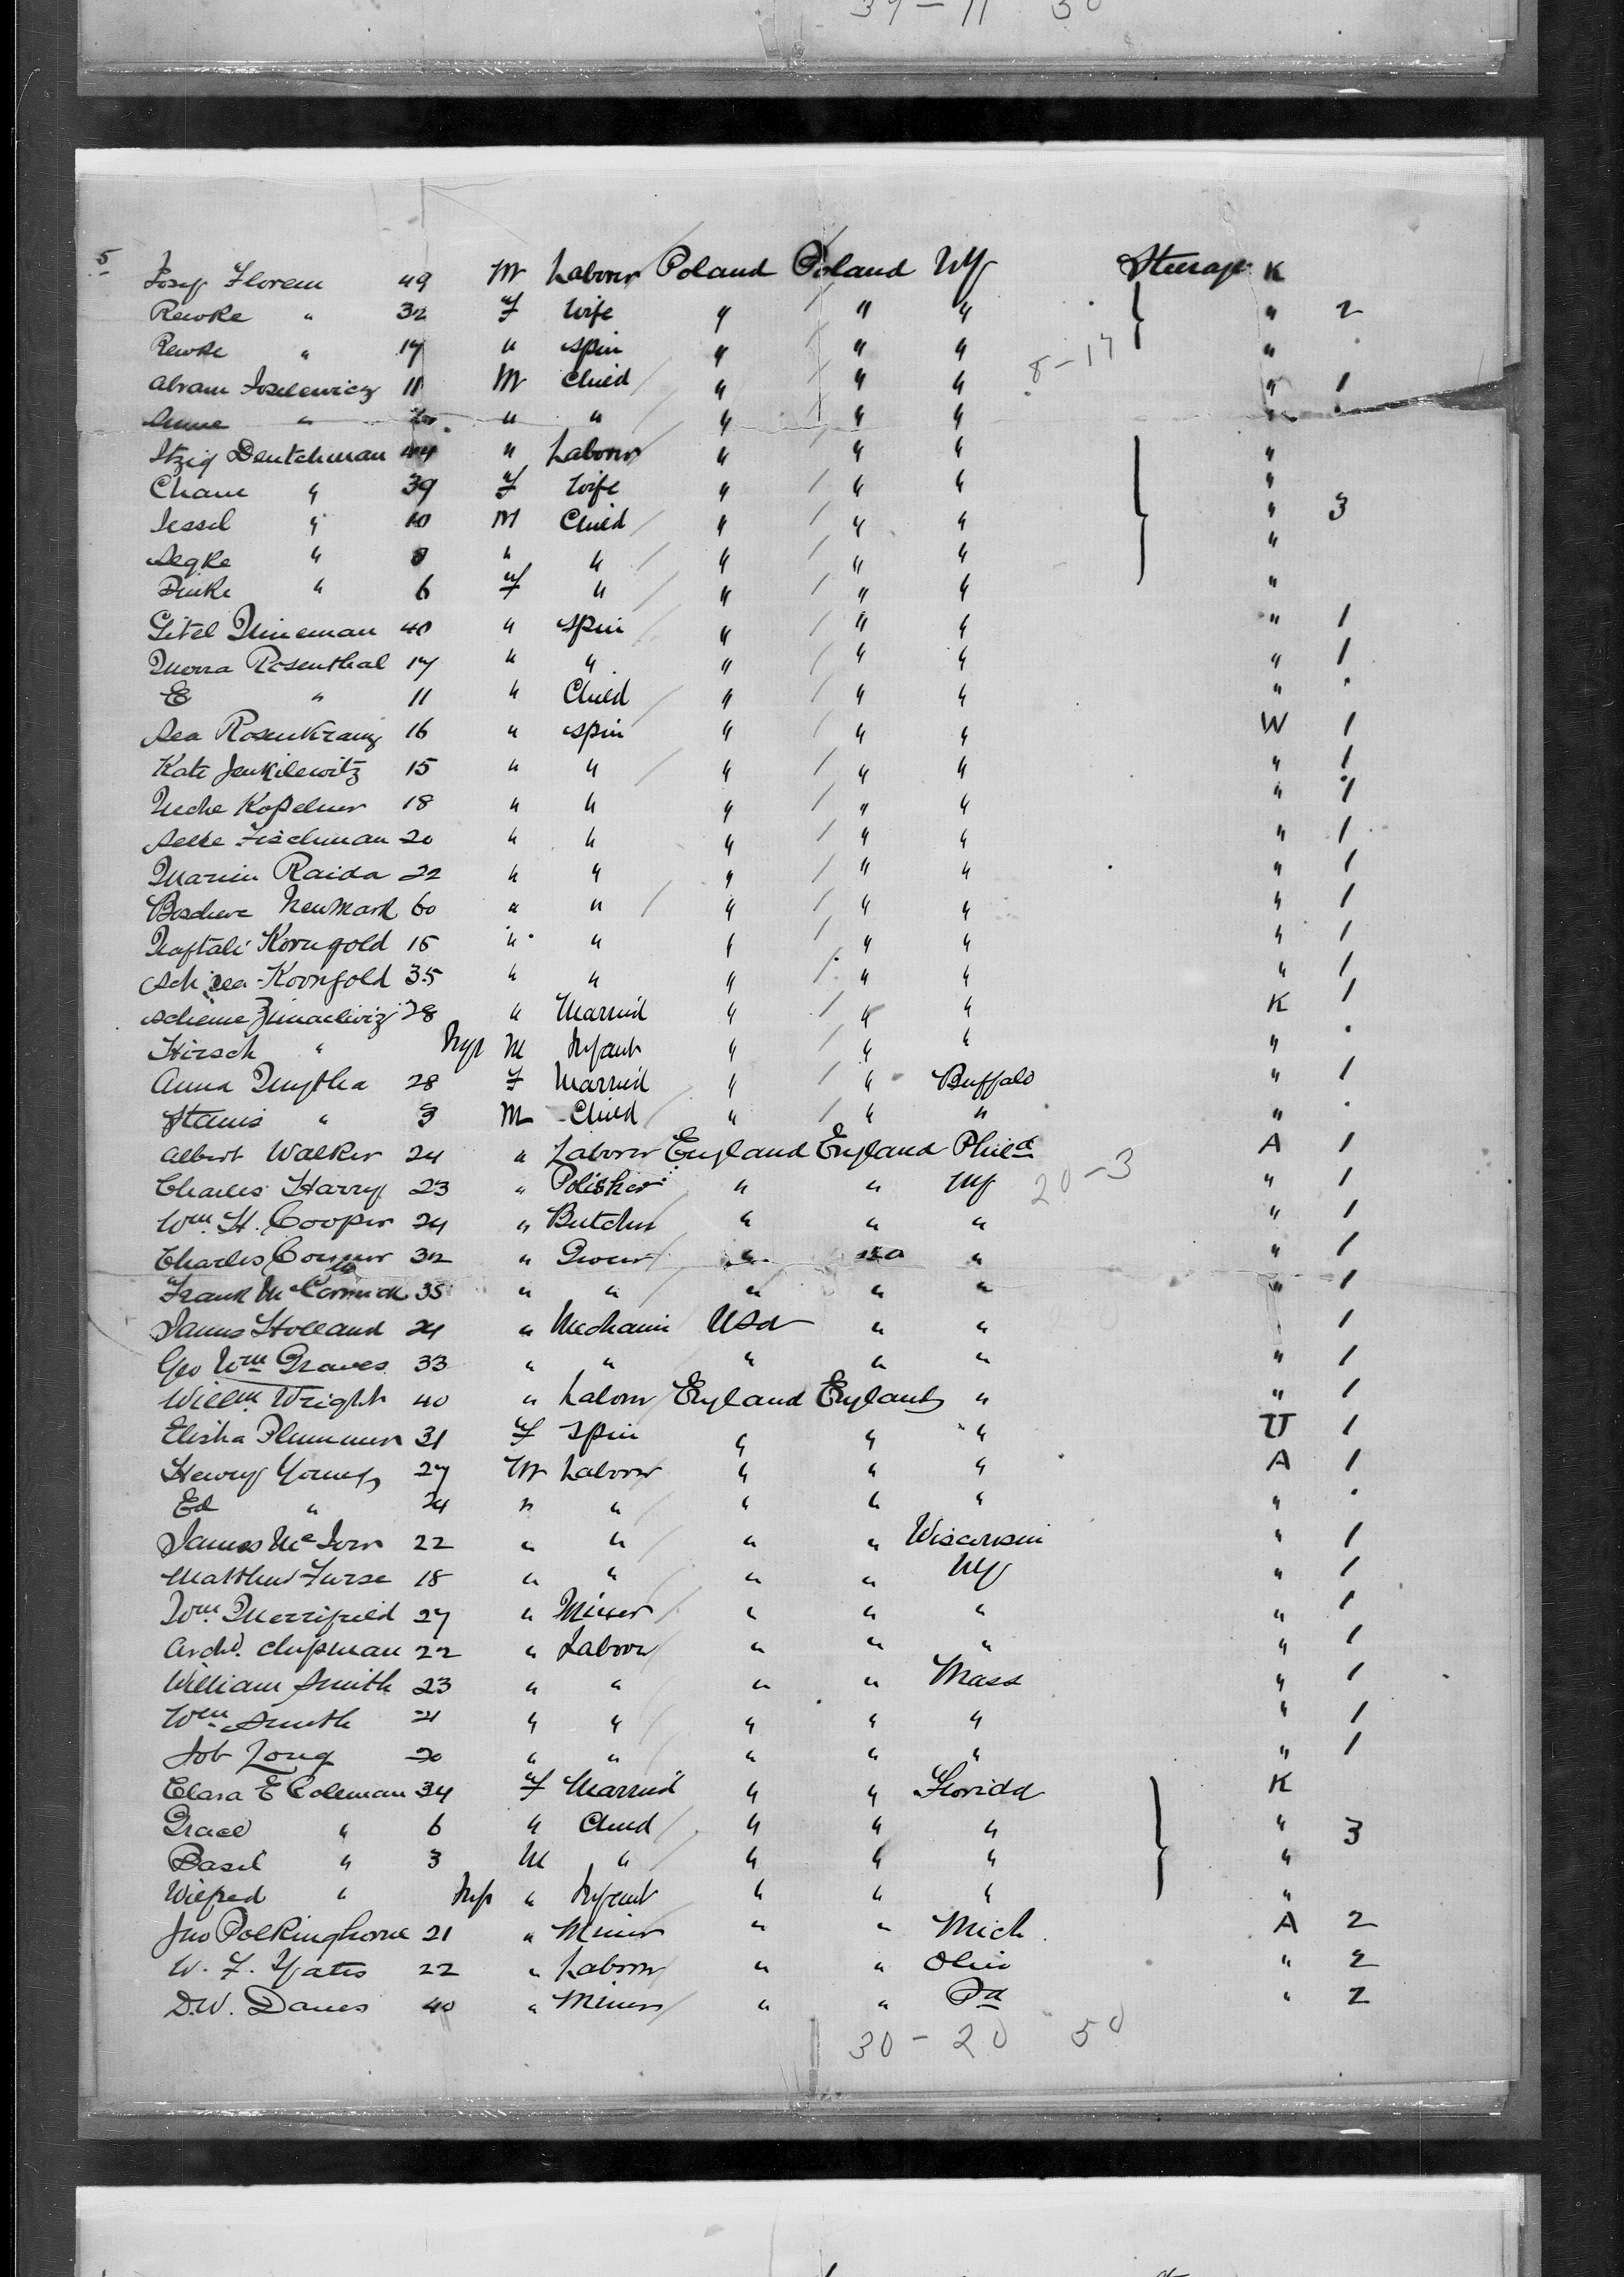 39 - 11 50
5
Josef Florem 49 M Laborer Poland Poland NY Steerage K
Rewke " 32 F Wife " " " " 2
Rewke " 17 " Spin " " " "
8-17
Abram Joselewicz 11 M Child " " " " 1
Anne " " " " " " "
Itzig Deutchman 44 " Laborer " " " "
Chane " 39 F Wife " " " "
Jessel " 10 M Child " " " " 3
Segke " 8 " " " " " "
Pinke " 6 F " " " " "
Gitel Mineman 40 " Spin " " " " 1
Merra Rosenthal 17 " " " " " " 1
E " 11 " Child " " " "
Sea Rosenkranz 16 " Spin " " " W 1
Kate Jenkilewitz 15 " " " " " " 1
Neche Kopelner 18 " " " " " " 1
Selke Fischman 20 " " " " " " 1
Marien Raida 22 " " " " " " 1
Boscheve Newmark 60 " " " " " " 1
Naftali Korngold 15 " " " " " " 1
Sch Lea Korngold 35 " " " " " " 1
Scheine 28 " Married " " " K 1
Hirsch " Inft M Infant " " " "
Anna 28 F Married " " Buffalo " 1
Stanis " 3 M Child " " " "
Albert Walker 24 " Laborer England England Phila A 1
Charles Harry 23 " Polisher " " NY " 1
20-3
Wm. H. Cooper 24 " Butcher " " " " 1
Charles Conner 32 " Grocer " USA " " 1
Frank McCormick 35 " " " " " " 1
James Holland 24 " Mechanic USA " " 1
Geo Wm Graves 33 " " " " " " 1
Willm Wright 40 " Laborer England England " " 1
Elisha Plummer 31 F Spin " " " U 1
Henry Young 27 M Laborer " " " A 1
Ed " 24 " " " " " "
James McIvor 22 " " " " Wisconsin " 1
Matthew Furse 18 " " " " NY " 1
Wm. Merrifield 27 " Miner " " " " 1
Archd. Chipman 22 " Laborer " " " " 1
William Smith 23 " " " " Mass " 1
Wm Smith 21 " " " " " " 1
Job Long 20 " " " " " " 1
Clara E Coleman 34 F Married " " Florida K
Grace " 6 " Child " " " " 3
Basil " 3 M " " " " "
Wilfred " Inft " Infant " " " "
Jno Polkinghorne 21 " Miner " " Mich A 2
W. F. Yates 22 " Laborer " " Ohio " 2
D.W. Davies 40 " Miner " " Pa " 2
30 - 20 50